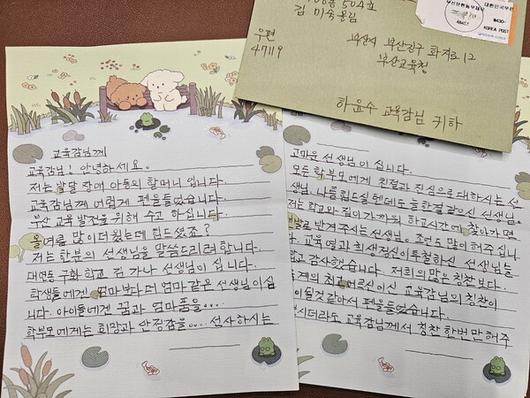 504호
김 미숙 올림
우편
47119
부산시 부산진구 화지로 12
부산교육청
하윤수 교육감님 귀하
대한민국
KOREA POST
교육감님께
교육감님! 안녕하세요.
저는 발달 장애 아동의 할머니 입니다.
교육감님께 어렵게 펜을 들었습니다.
부산 교육 발전을 위해 수고 하십니다.
올여름 많이 더웠는데 힘드셨죠?
저는 한분의 선생님을 말씀드리려 합니다.
대연동 구화학교 김 가나 선생님이 십니다.
학생들에겐 엄마보다 더 엄마같은 선생님이십
니다. 아이들에겐 꿈과 엄마품을...
학부모에게는 희망과 안정감을... 선사하시는
고마운 선생님이 십니다.
모든 학부모에게 친절과 진심으로 대하시는 선
생님. 나름 힘드실텐데도 늘 한결같으신 선생님.
저는 학교와 집이 가까워 하교시간에 찾아가면
반겨주시는 선생님. 조언도 많이 해주십
교육열과 희생정신이 투철하신 선생님을
감사했습니다. 저희의 많은 칭찬보다
교육감님의 칭찬이
것 같아서 펜을 들었습니다.
교육감님께서 칭찬 한번만 해주